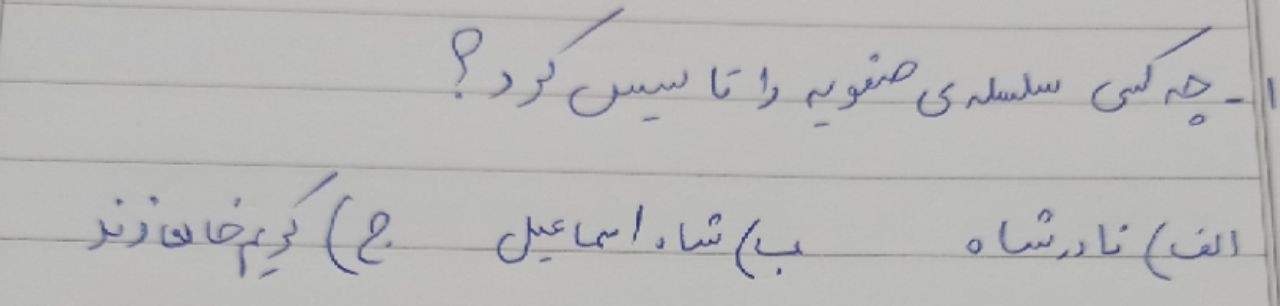 ۱- چه کسی سلسله ی صفویه را تاسیس کرد؟
الف) نادرشاه ب) شاه اسماعیل ج) کریم خان زند